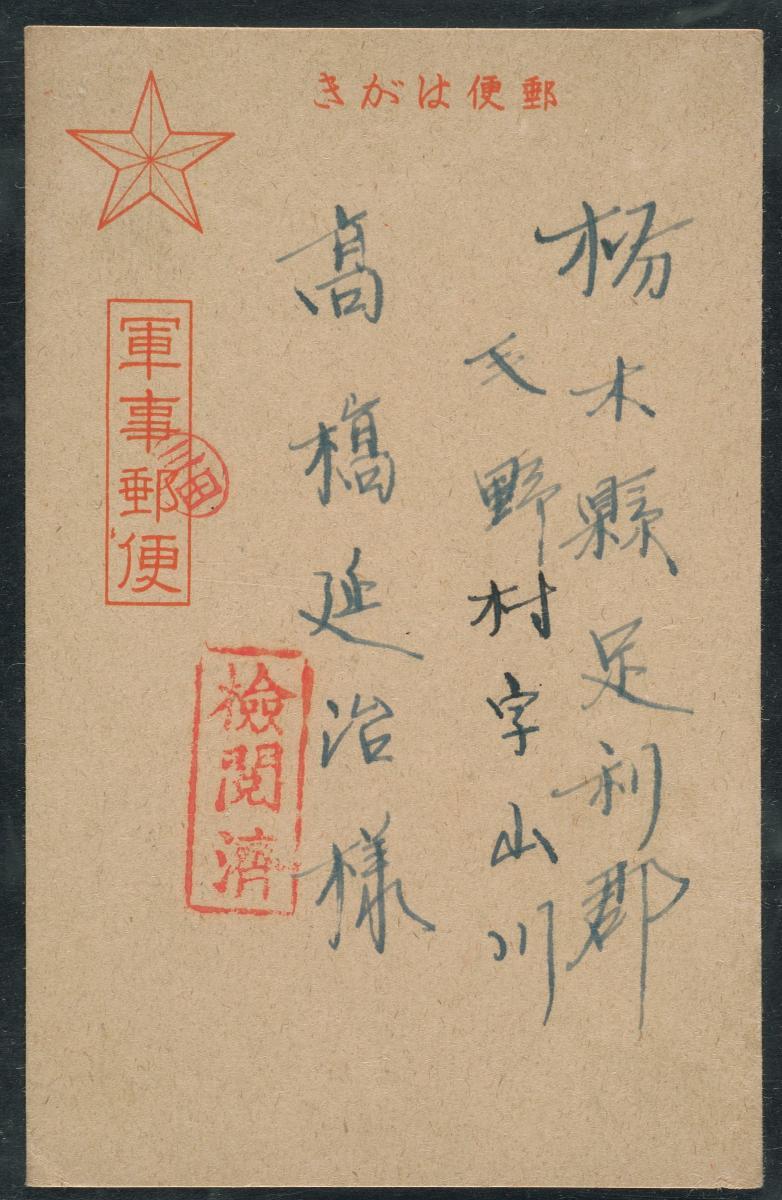 郵便はがき
栃木縣足利郡
毛野村字山川
高橋延治様
軍事郵便
三田
檢閲濟